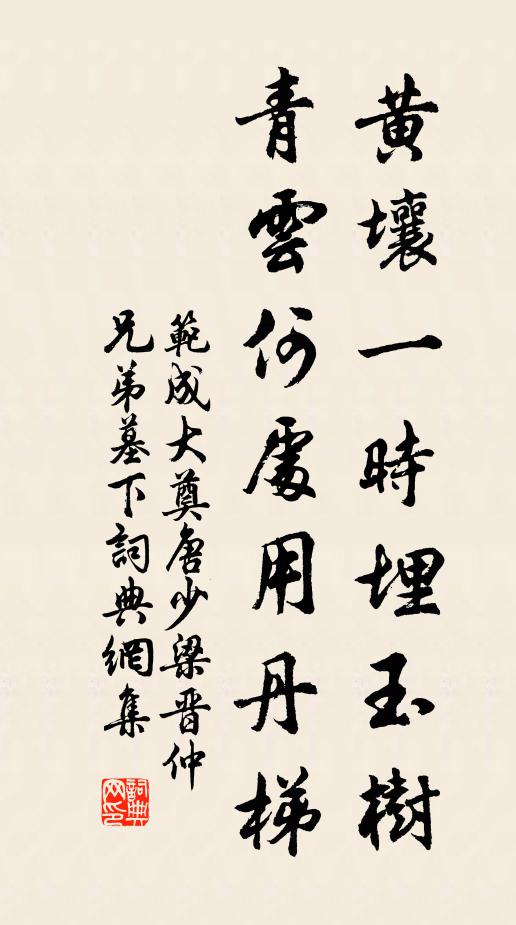 黃壤一時埋玉樹
青雲何處用丹梯
範成大奠唐少梁晋仲
兄弟墓下詞典網集
詞典网印